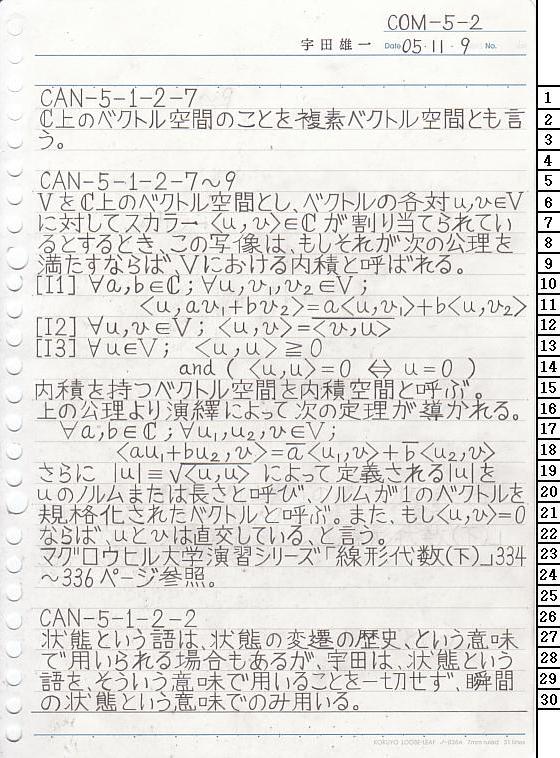 COM-5-2
宇田雄一 Date 05・11・9 No.
CAN-5-1-2-7
ℂ上のベクトル空間のことを複素ベクトル空間とも言
う。
CAN-5-1-2-7～9
Vをℂ上のベクトル空間とし、ベクトルの各対u,v∈V
に対してスカラー〈u,v〉∈ℂが割り当てられてい
るとするとき、この写像は、もしそれが次の公理を
満たすならば、Vにおける内積と呼ばれる。
[I1] ∀a,b∈ℂ;∀u,v₁,v₂∈V;
〈u,av₁+bv₂〉=a〈u,v₁〉+b〈u,v₂〉
[I2] ∀u,v∈V; 〈u,v〉=\overline{〈v,u〉}
[I3] ∀u∈V; 〈u,u〉≧0
and (〈u,u〉=0 ⇔ u=0)
内積を持つベクトル空間を内積空間と呼ぶ。
上の公理より演繹によって次の定理が導かれる。
∀a,b∈ℂ;∀u₁,u₂,v∈V;
〈au₁+bu₂,v〉=a̅〈u₁,v〉+b̅〈u₂,v〉
さらに |u|≡√〈u,u〉 によって定義される|u|を
uのノルムまたは長さと呼び、ノルムが1のベクトルを
規格化されたベクトルと呼ぶ。また、もし〈u,v〉=0
ならば、uとvは直交している、と言う。
マグロウヒル大学演習シリーズ「線形代数(下)」334
～336ページ参照。
CAN-5-1-2-2
状態という語は、状態の変遷の歴史、という意味
で用いられる場合もあるが、宇田は、状態という
語を、そういう意味で用いることを一切せず、瞬間
の状態という意味でのみ用いる。
KOKUYO LOOSE-LEAF ノ-836A 7mm ruled 31 lines
1
2
3
4
5
6
7
8
9
10
11
12
13
14
15
16
17
18
19
20
21
22
23
24
25
26
27
28
29
30